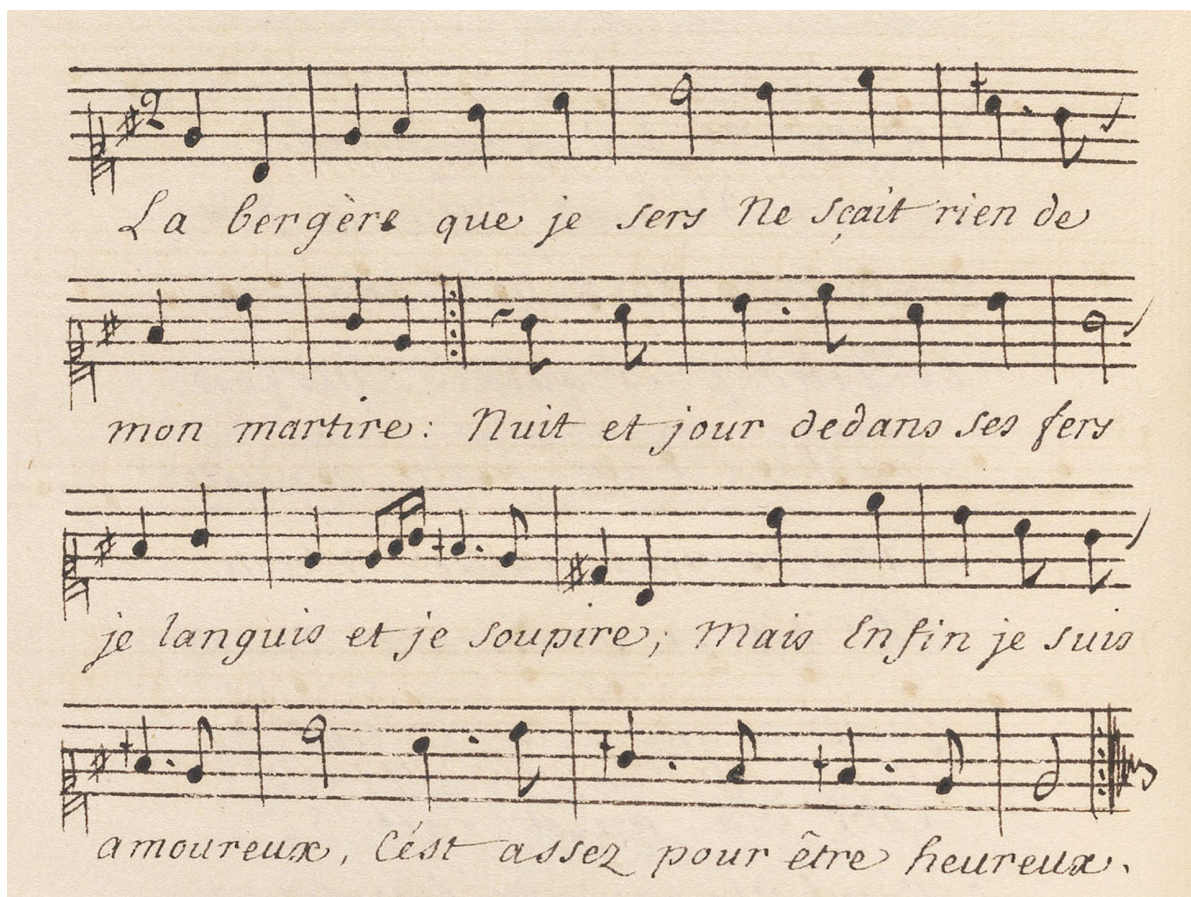 La bergère que je sers Ne sçait rien de
mon martire : Nuit et jour dedans ses fers
je languis et je soupire ; Mais Enfin je suis
amoureux, C'ést assez pour être heureux.